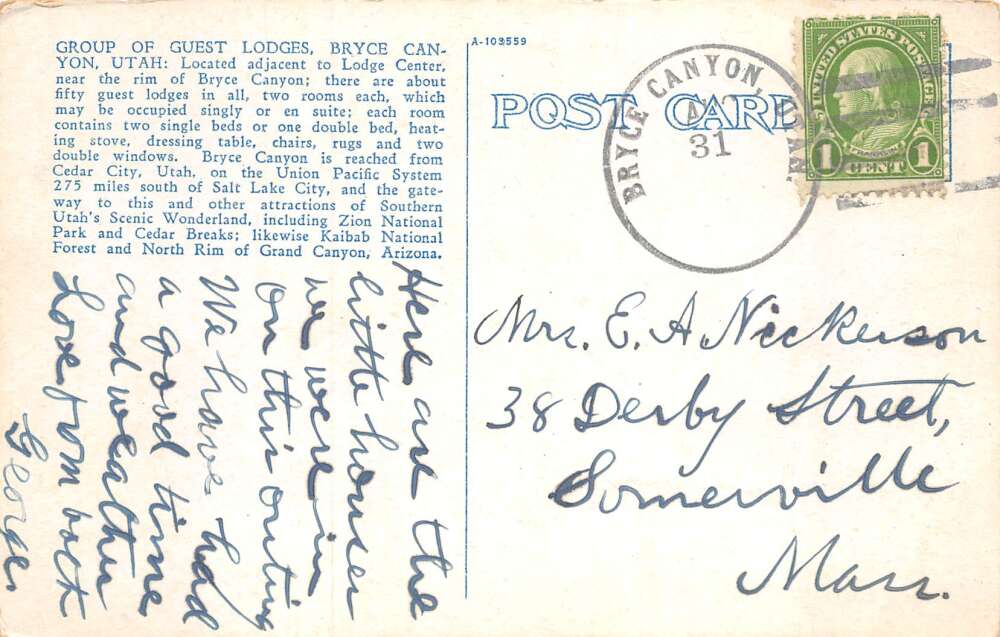 GROUP OF GUEST LODGES, BRYCE CAN-
YON, UTAH: Located adjacent to Lodge Center,
near the rim of Bryce Canyon; there are about
fifty guest lodges in all, two rooms each, which
may be occupied singly or en suite; each room
contains two single beds or one double bed, heat-
ing stove, dressing table, chairs, rugs and two
double windows. Bryce Canyon is reached from
Cedar City, Utah, on the Union Pacific System
275 miles south of Salt Lake City, and the gate-
way to this and other attractions of Southern
Utah's Scenic Wonderland, including Zion National
Park and Cedar Breaks; likewise Kaibab National
Forest and North Rim of Grand Canyon, Arizona.
Here are the
little houses
we were in
on this outing
We have had
a good time
and weather
Love from both
George.
A-103559
POST CARD
BRYCE CANYON, UTAH.
31
UNITED STATES POSTAGE
1 CENT 1
Mrs. E. A Nickerson
38 Derby Street,
Somerville
Mass.